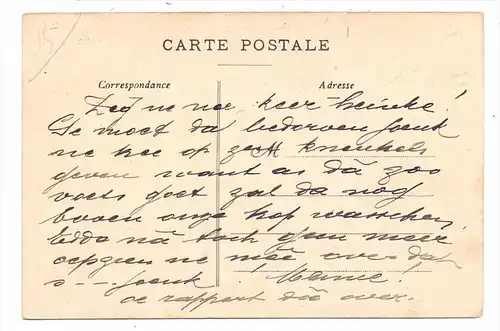 CARTE POSTALE
Correspondance Adresse
Zeg ne nee keer heinke!
Ge moet da bedorven joenk
ne kee op zen kneukels
geven want as dà zoo
voets goet zal da nog
boven onze kop wasschen
nà toch geen meer
ne mee over dat
s---joenk!
rapport dà over.